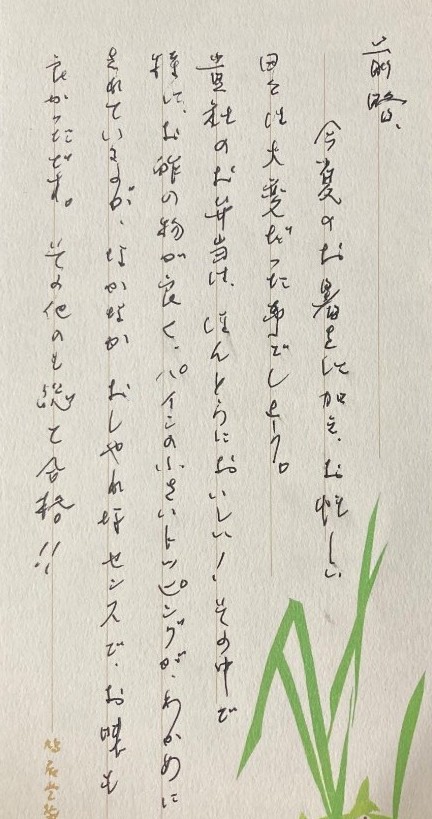 前略、
今夏のお暑さに加え、お忙しい
日々は大変だった事でしょう。
貴社のお弁当は、ほんとうにおいしい！その中で
特に、お酢の物が良く、パインの小さいトッピングが、わかめに
されていますが、なかなか おしゃれなセンスで、お味も
良かったです。その他のも総て合格!!